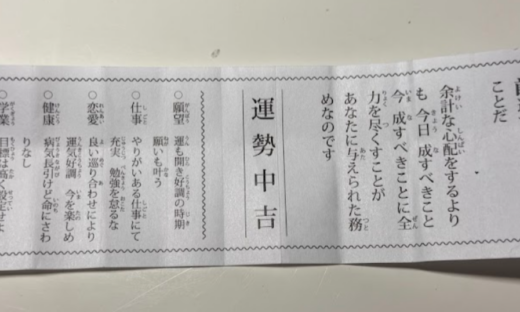 ことだ
余計な心配をするより
も 今日 成すべきこと
今 成すべきことに全
力を尽くすことが
あなたに与えられた務
めなのです
運勢中吉
○願望 運も開き好調の時期
願いも叶う
○仕事 やりがいある仕事にて
充実 勉強を怠るな
○恋愛 良い巡り合わせにより
運気好調 今を楽しめ
○健康 病気長引けど命にさわ
りなし
○学業 目標は高く